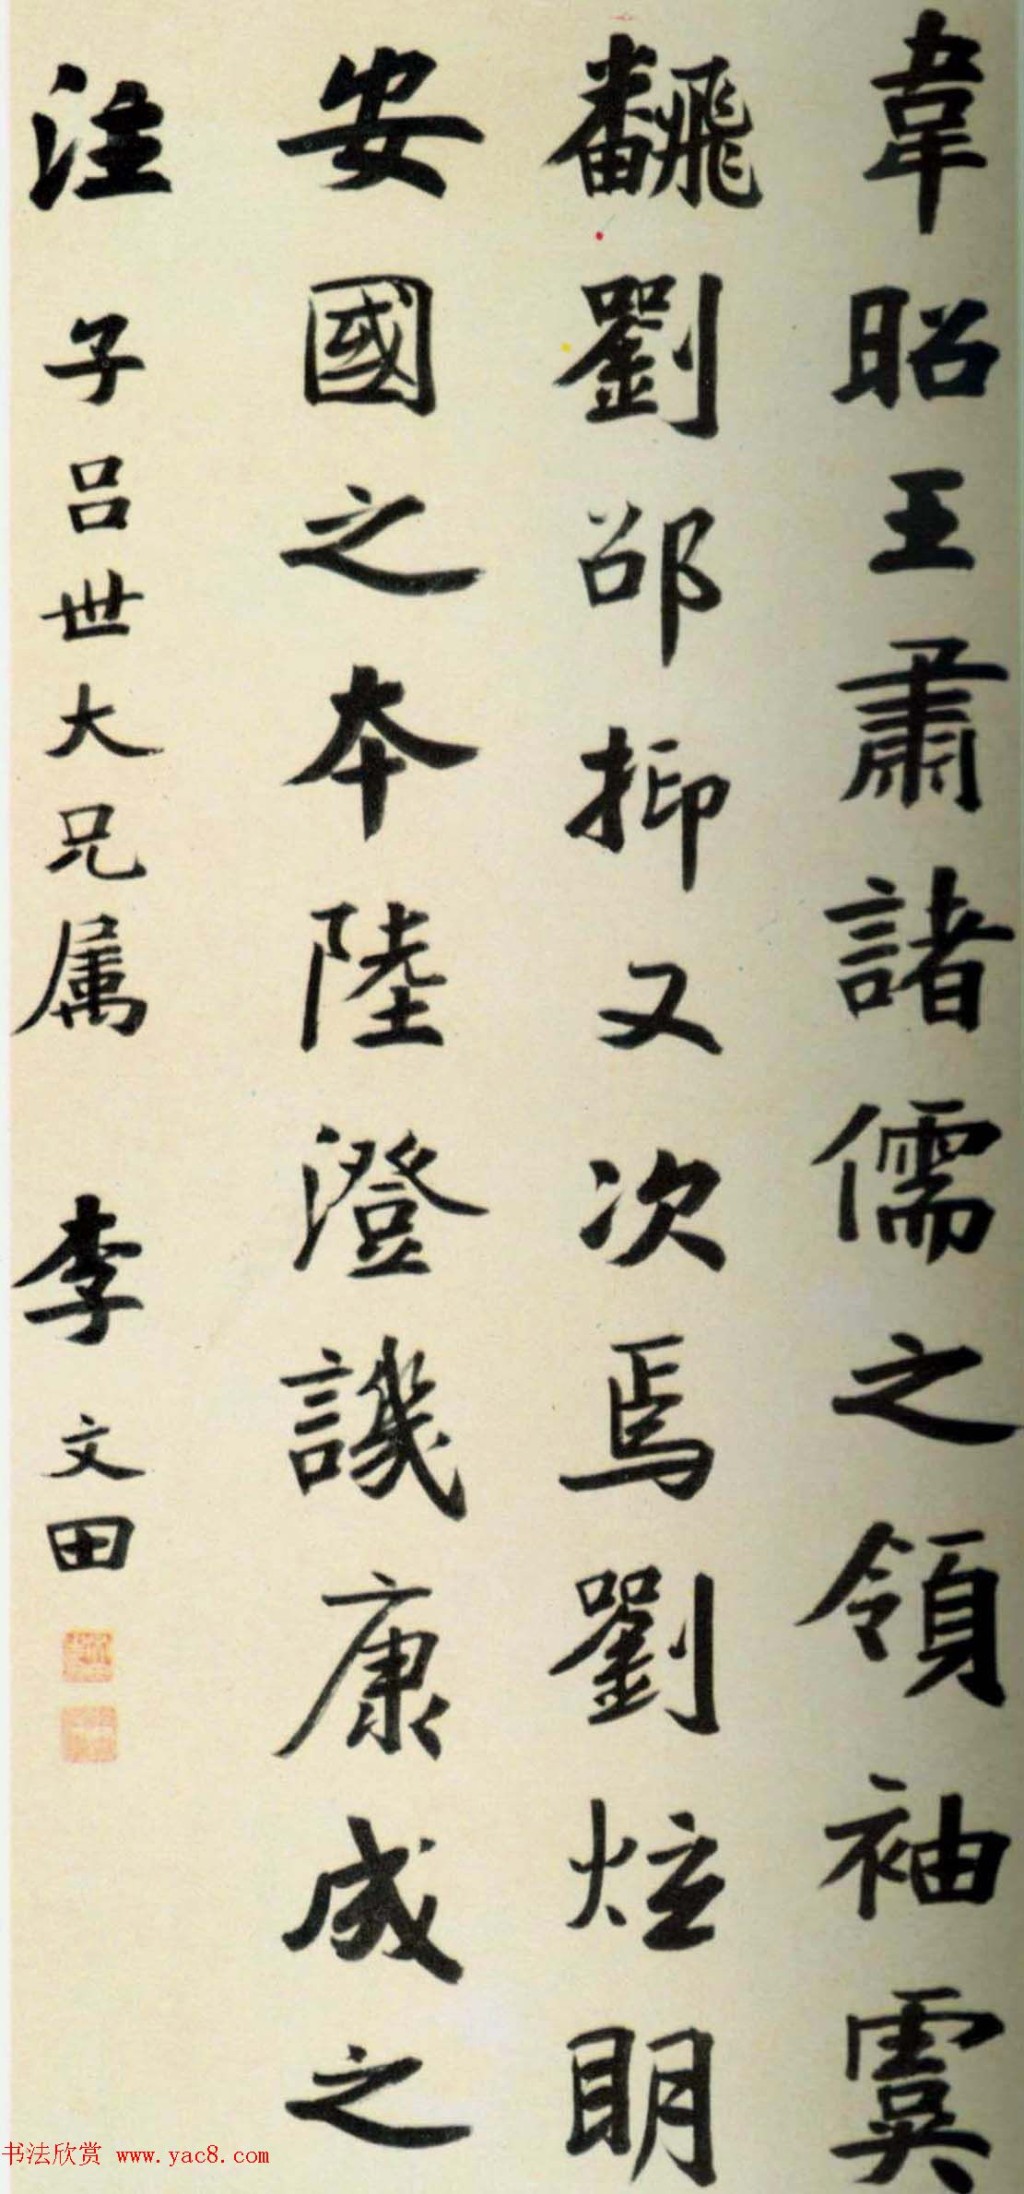 韋昭王肅諸儒之領袖虞
飜劉邵抑又次焉劉炫眀
安國之本陸澄譏康成之
注 子吕世大兄属 李文田
书法欣赏 www.yac8.com